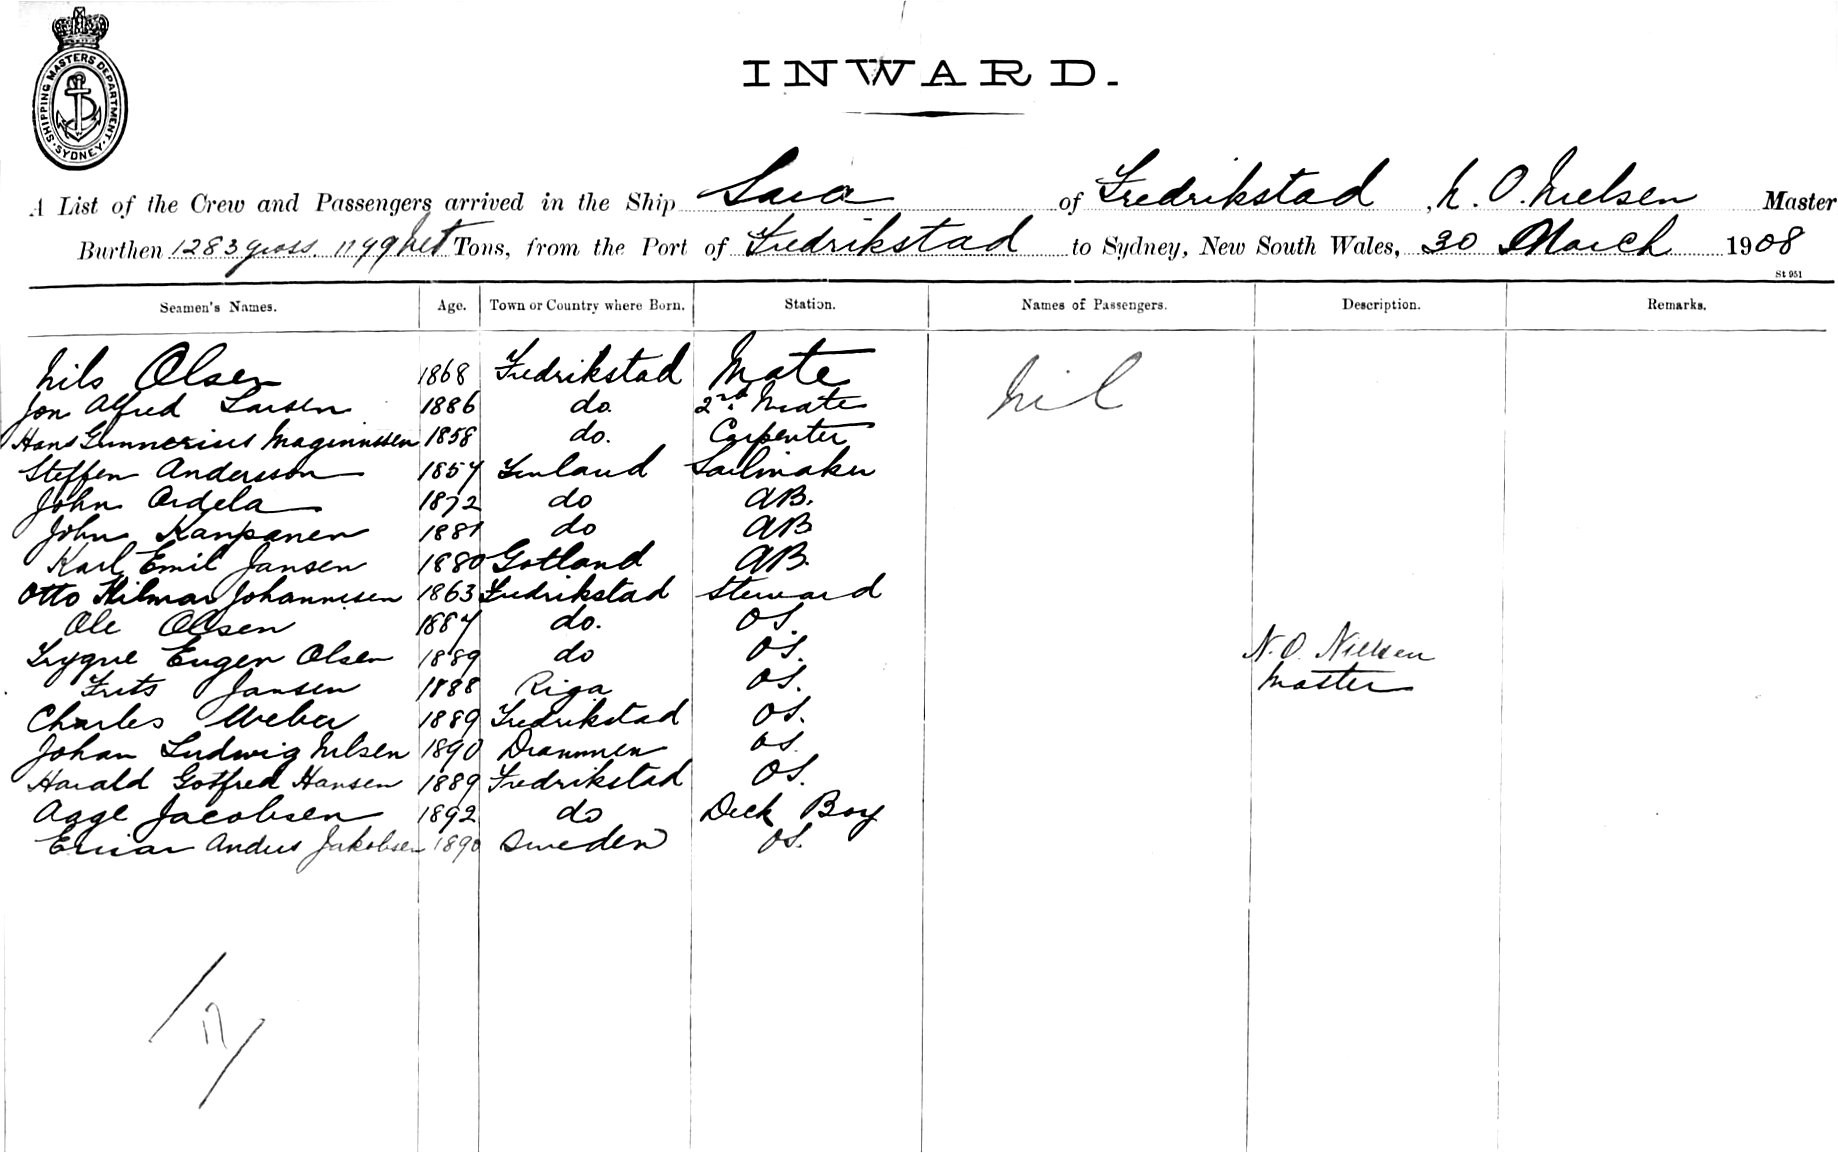 SHIPPING MASTERS DEPARTMENT · SYDNEY ·
INWARD.
A List of the Crew and Passengers arrived in the Ship Sara of Fredrikstad, N. O. Nielsen Master
Burthen 1283 gross. 1199 net Tons, from the Port of Fredrikstad to Sydney, New South Wales, 30 March 1908
St 951
Seamen's Names. Age. Town or Country where Born. Station. Names of Passengers. Description. Remarks.
Nils Olsen 1868 Fredrikstad Mate Nil
Jon Alfred Larsen 1886 do. 2nd Mate
Hans Gunnerius Magnussen 1858 do. Carpenter
Steffen Andersson 1857 Finland Sailmaker
John 1872 do AB.
John Kanpanen 1881 do AB
Karl Emil Jansen 1880 Gotland AB.
Otto Hilmar Johannesen 1863 Fredrikstad Steward
Ole Olsen 1887 do. OS.
Trygve Eugen Olsen 1889 do OS. N. O. Nielsen
Frits Jansen 1888 Riga OS. Master
Charles Weber 1889 Fredrikstad OS.
Johan Ludwig Nilsen 1890 Drammen OS.
Harald Gotfred Hansen 1889 Fredrikstad OS.
Aage Jacobsen 1892 do Deck Boy
Anders Jakobsen 1890 Sweden OS.
17